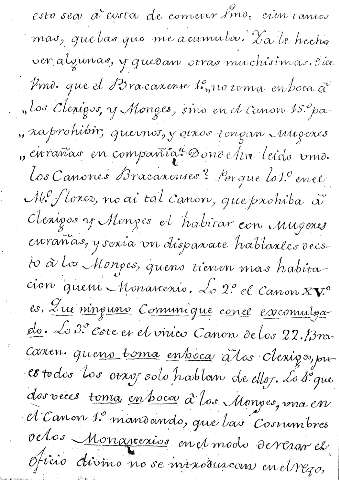 esto sea á costa de cometer Vmd. cien tantos
mas, que las que me acumula. Ya le he hecho
ver algunas, y quedan otras muchisimas. Cita
Vmd. que el Bracarense 1.º no toma en boca á
„ los Clerigos, y Monges, sino en el Canon 15.º pa-
„ ra prohibir, que unos, y otros tengan Mugeres
„ estrañas en compañia. Donde ha leido vmd.
los Canones Bracarenses? Porque lo 1.º en el
M.º Florez, no ai tal Canon, que prohiba á
Clerigos y Monges el habitar con Mugeres
estrañas, y seria un disparate hablarles de es-
to á los Monges, que no tienen mas habita-
cion que un Monasterio. Lo 2.º el Canon XV.º
es. Que ninguno Comunique con el excomulga-
do. Lo 3.º Este es el unico Canon de los 22. Bra-
caren. que no toma en boca á los Clerigos, pu-
es todos los otros solo hablan de ellos. Lo 4.º que
dos veces toma en boca á los Monges, una en
el Canon 1.º mandando, que las Costumbres
de los Monasterios en el modo de rezar el
oficio divino no se introduzcan en el rezo,